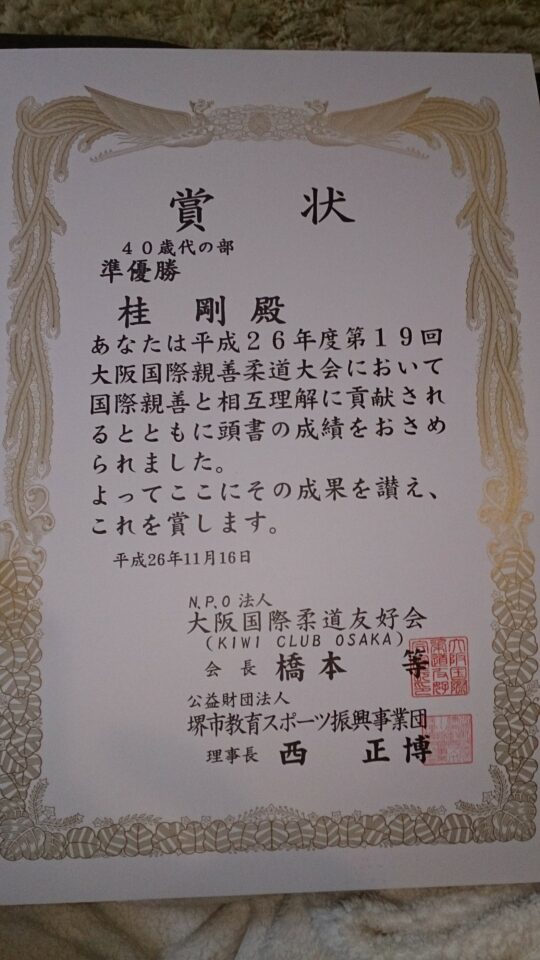 賞状
４０歳代の部
準優勝
桂 剛 殿
あなたは平成２６年度第１９回
大阪国際親善柔道大会において
国際親善と相互理解に貢献され
るとともに頭書の成績をおさめ
られました。
よってここにその成果を讃え、
これを賞します。
平成26年11月16日
N.P.O 法人
大阪国際柔道友好会
(KIWI CLUB OSAKA)
会長 橋本 等
公益財団法人
堺市教育スポーツ振興事業団
理事長 西 正博